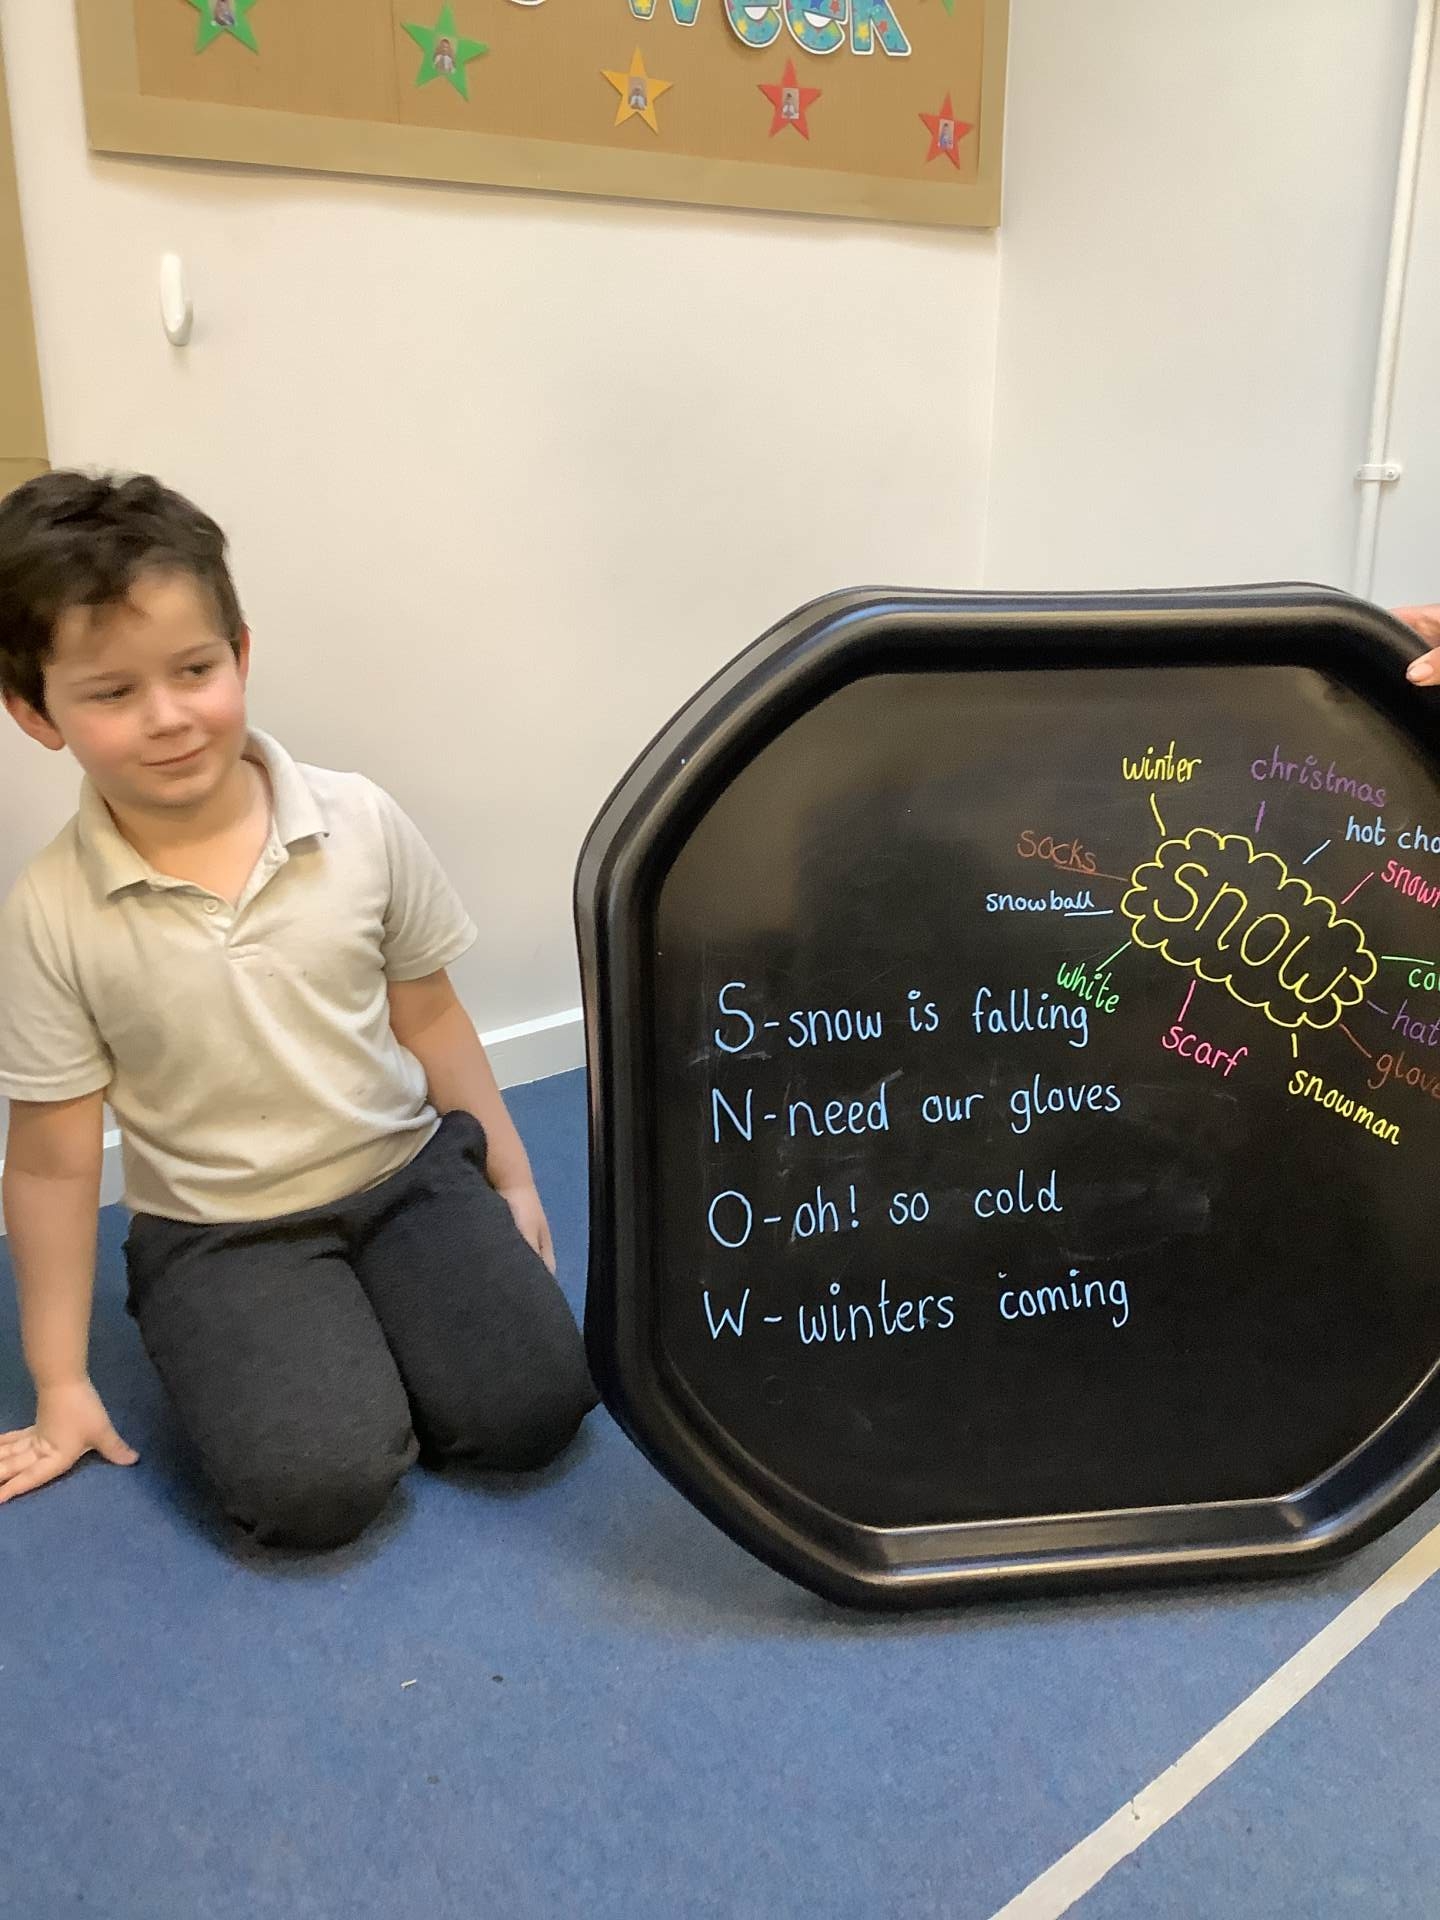 week
winter
christmas
hot cho
socks
snowball
snow
white
scarf
snowman
hat
S-snow is falling
N-need our gloves
O-oh! so cold
W-winters coming